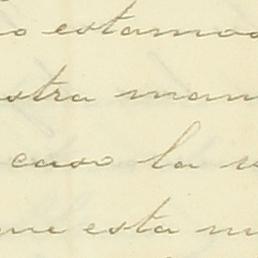 o estamos
stra man
caso la
que esta